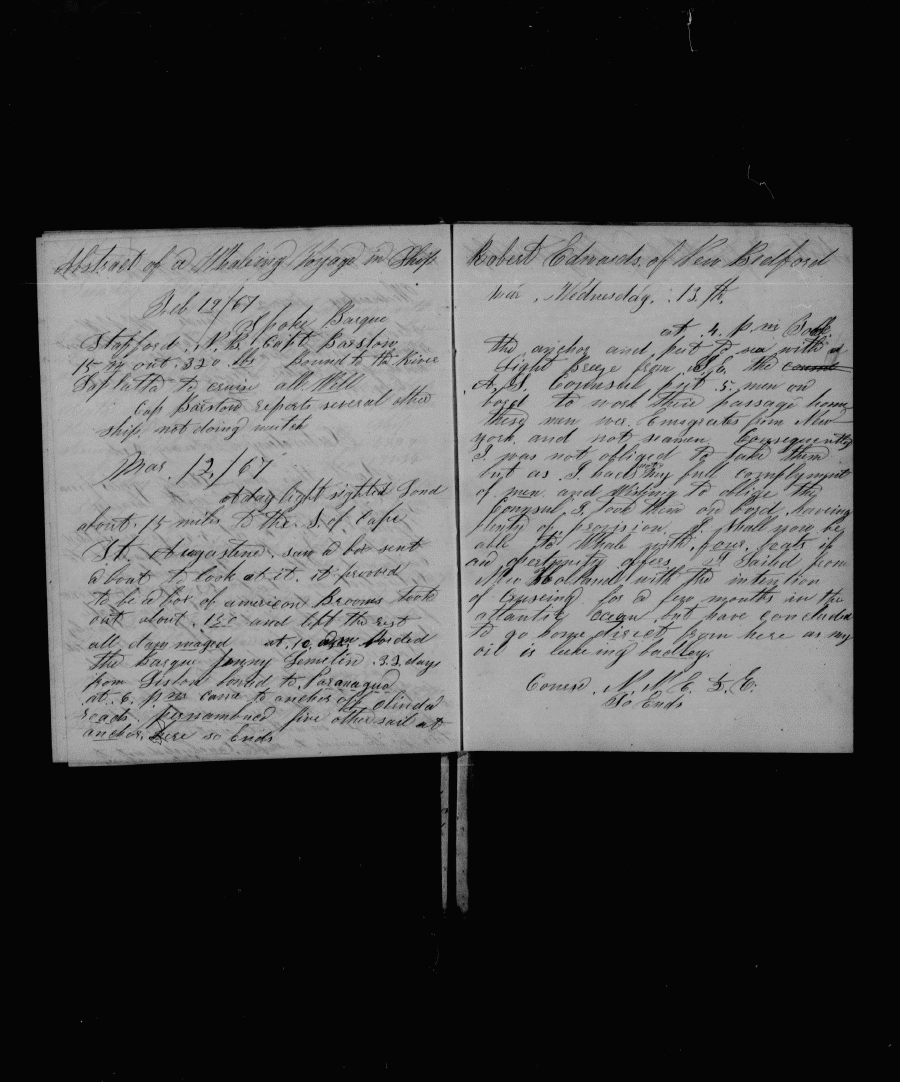 Abstract of a Whaleing Voyage in Ship
Feb 12/67
Spoke Barque
Stafford. N. B. Capt. Barstow
15 m out. 320 bls Bound to the River
to cruise all Well
Cap Barstow reports several other
ships not doing much
Mar. 12/67
at day light sighted Land
about 15 miles to the S. of Cape
St. Augustine. saw a box sent
a boat to look at it. it prooved
to be a box of american Brooms took
out about. 150 and left the rest
all dam maged at. 10. boarded
the Barque Jenny 33. days
from Lisbon bound to Paranagua
at. 6. p m came to anchor off Olinda
roads. Pernambuco five other sail at
anchor. here so Ends
Robert Edwards. of New Bedford
Mar. Wednesday. 13 th.
at. 4. p. m Took
the anchor and put to sea with a
light breeze from S. E. the
U. S. Counsul put. 5. men on
bord to work their passage home
these men wer Emigrates from New
york and not seamen. Consequently
I was not obliged to take them
but as I had not my full complyment
of men and Wishing to oblige the
Consul I took them on bord having
plenty of provision. I shall now be
able to Whale with four boats if
an opertunity offers. I Sailed from
New Holland with the intention
of Cruseing for a few months in the
atlantic Ocean but have concluded
to go home direct from here as my
oil is leakeing badley.
Couse. N. N. E. & E.
So Ends